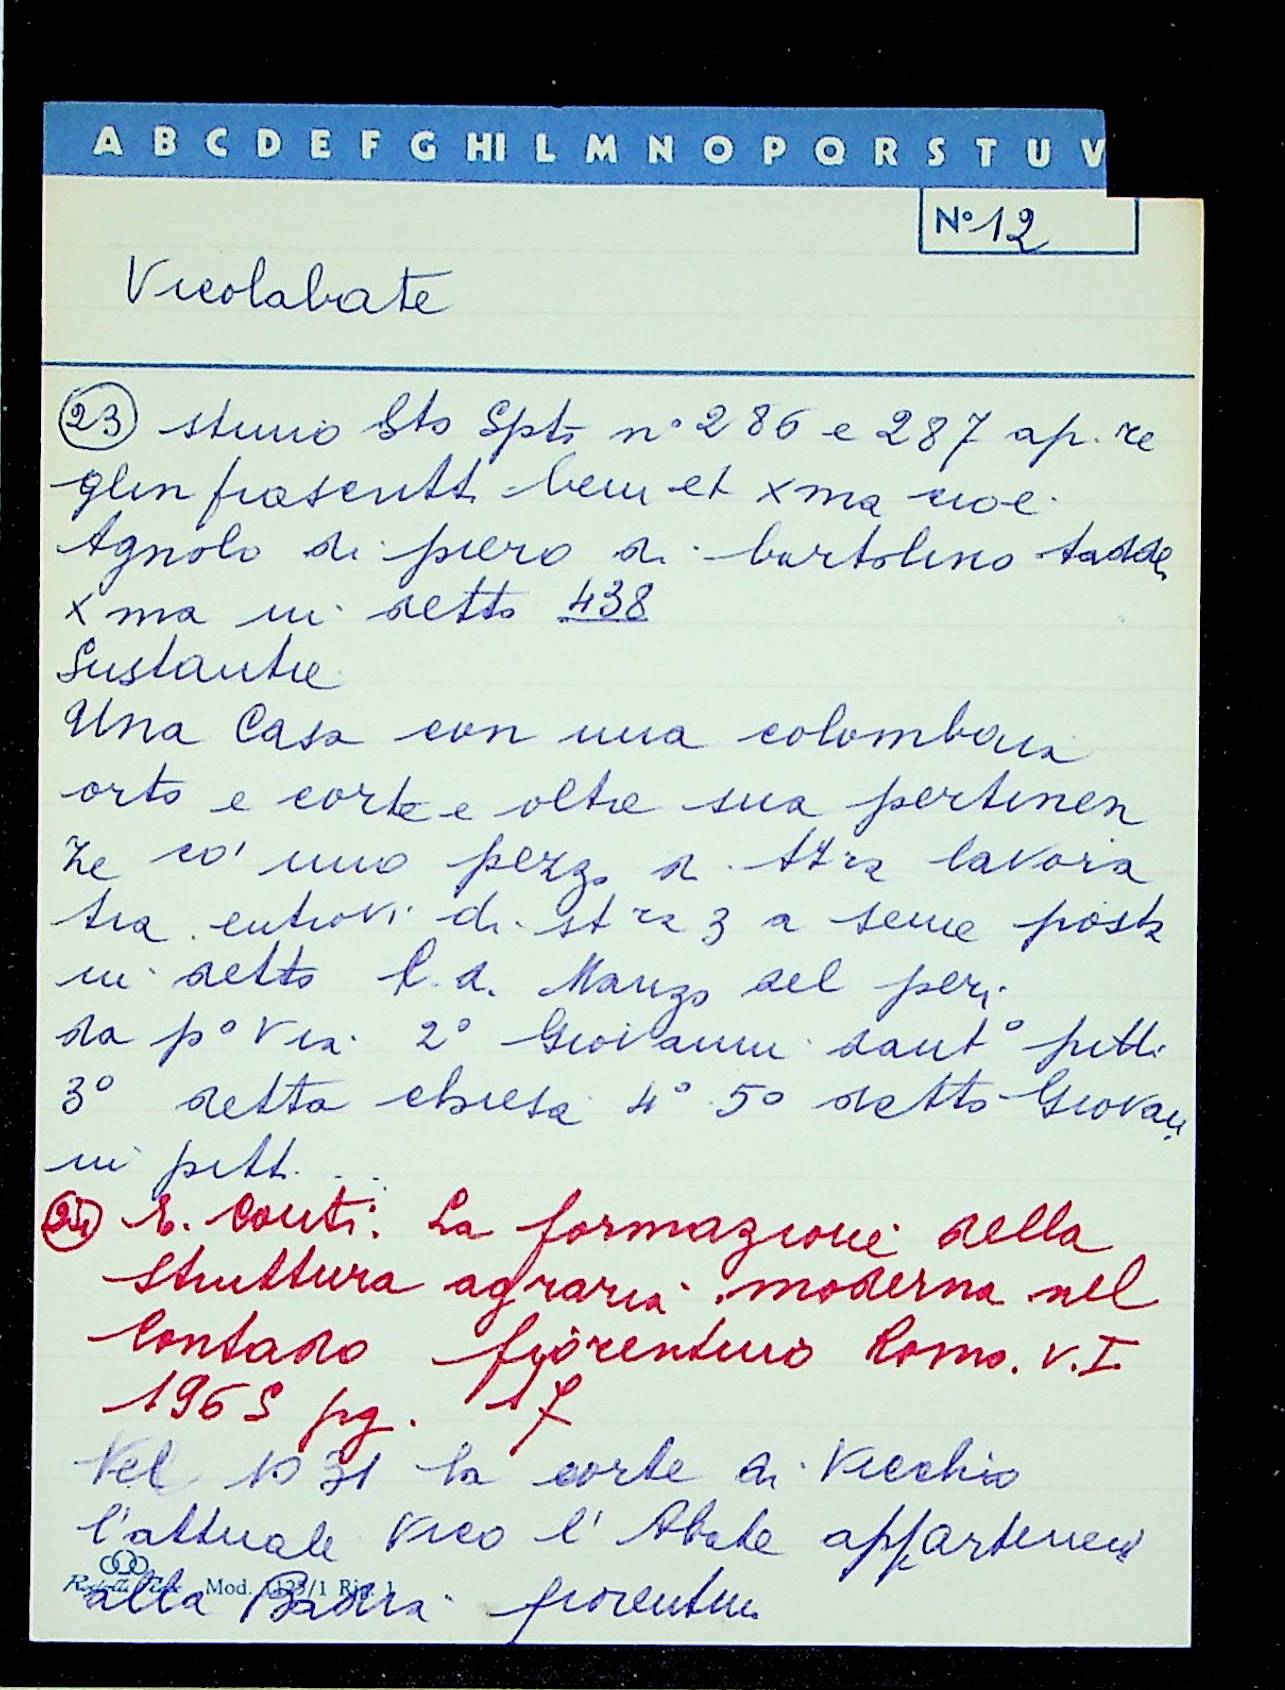 A B C D E F G HI L M N O P Q R S T U V
N° 12
Vicolabate
23 Sto Spto n° 286 e 287 ap. re
glin frascritti beni et xma cioe
Agnolo di piero di bartolino taddei
xma in detto 438
Sustantie
Una Casa con una colombaia
orto e corte e oltre sua pertinen
ze co' uno pezzo di ttra lavora
tia entrovi di st ra 3 a seme posta
in detto P. d. Manzo del peri
da p° via 2° Giovanni dant° pitti
3° detta chiesa 4° 5° detto Giovan
ni pitti ...
E. Conti. La formazione della
struttura agraria moderna nel
Contado fiorentino Roma. v. I
1965 pg. 17
Nel 1031 la corte di Vicchio
l'attuale Vico l' Abate appartenevi
alla Badia fiorentina
Mod. 1125/1 Rig. 1